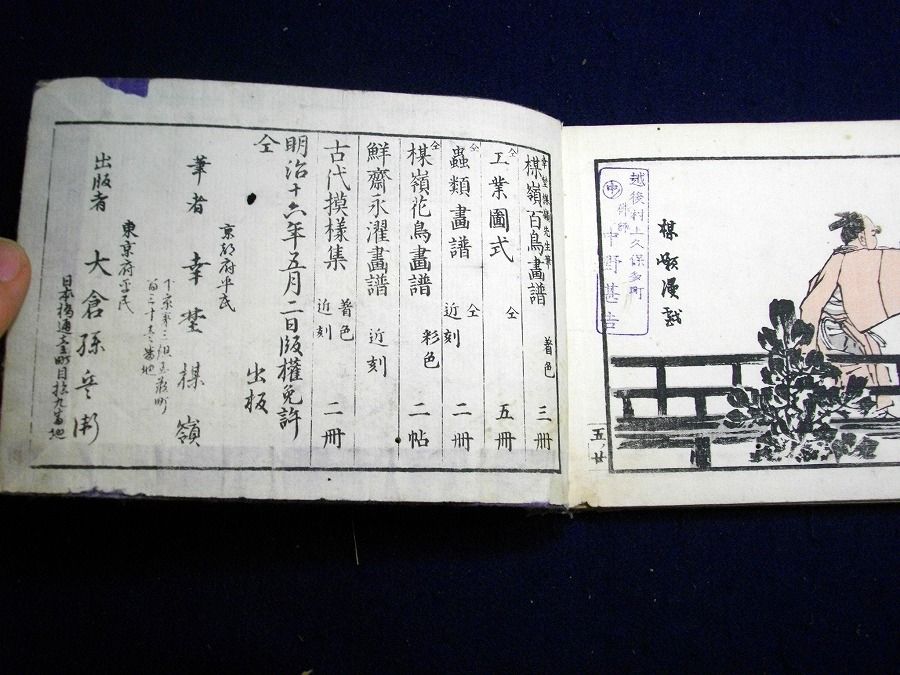 楳嶺漫戯
越後村上久保多町
中野甚吉
五ノ廿
幸埜楳嶺先生筆
楳嶺百鳥畫譜 着色 三冊
仝 工業圖式 仝 五冊
仝 蟲類畫譜 仝 近刻 二冊
仝 楳嶺花鳥畫譜 彩色 二帖
鮮齋永濯畫譜 近刻
古代摸樣集 着色 近刻 二冊
明治十六年五月二日版權免許
仝 出板
京都府平民
筆者 幸埜楳嶺
東京府平民
出版者 大倉孫兵衛